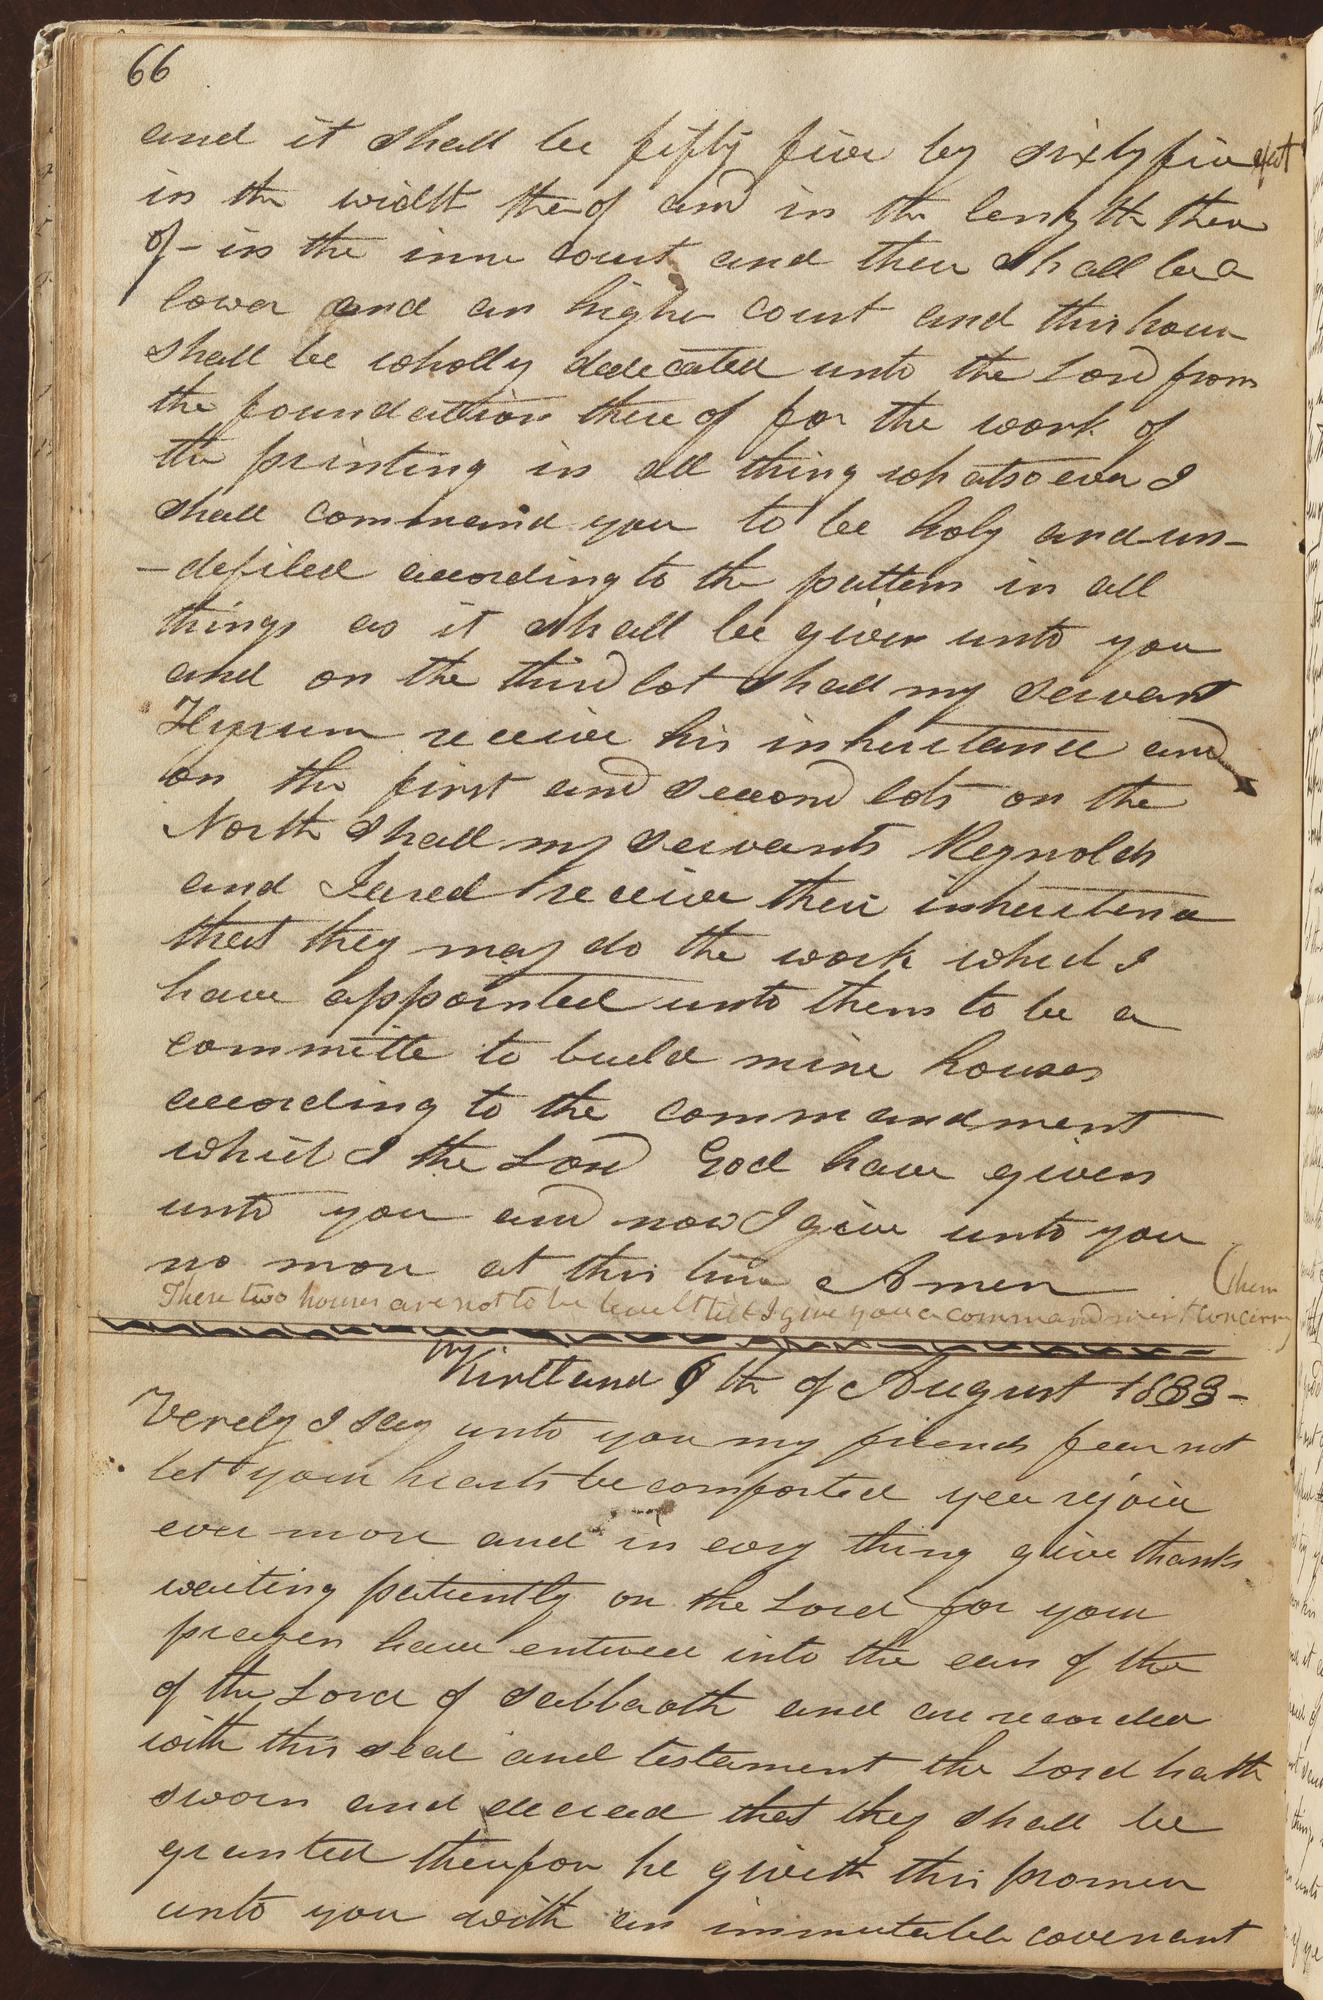 66
and it shall be fifty five by sixty five feet
in the width theof and in the lenghth there
of - in the inner court and there shall be a
lower and an higher court and this house
shall be wholly dedecated unto the Lord from
the foundation there of for the work of
the printing in all thing whatsoever I
shall command you to be holy and un-
-defiled according to the pattern in all
things as it shall be given unto you
and on the third lot shall my servant
Hyrum receive his inheritance and
on the first and second lots on the
North shall my servants Reynolds
and Jared receive their inheritance
that they may do the work which I
have appointed unto them to be a
committe to build mine houses
according to the commandment
which I the Lord God have given
unto you and now I give unto you
no more at this time Amen
These two houses are not to be buult till I give you a commandment concerning
(them
Kirtland 6th of August 1833-
Verely I say unto you my friends fear not
let your hearts be comforted yea rejoice
ever more and in evry thing give thanks
waiting patiently on the Lord for your
prayers have entered into the ears of the
of the Lord of Sabbaoth and are recorded
with this seal and testament the Lord hath
sworn and decreed that they shall be
granted therefore he giveth this promise
unto you with an immutable covenant